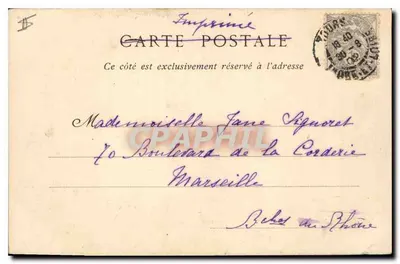 Imprimé
CARTE POSTALE
Ce côté est exclusivement réservé à l'adresse
TOURS
Mademoiselle Jane Signoret
CPAPHIL
70 Boulevard de la Corderie
Marseille
Bches du Rhône